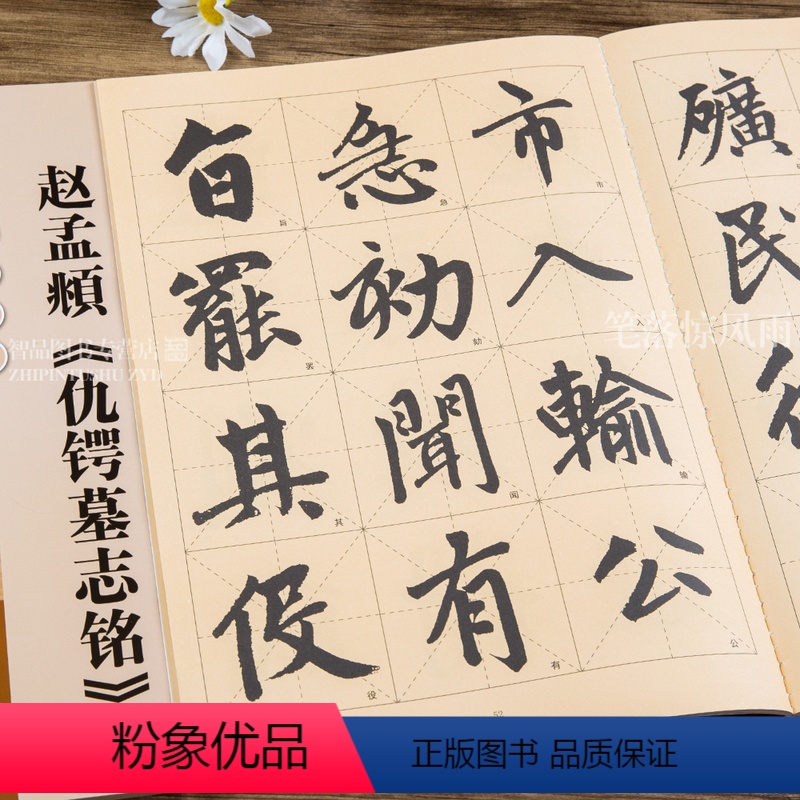 赵孟頫《仇锷墓志铭》
旨 急 市
旨 急 市
罷 劾 入
罢 劾 入
其 聞 輸
其 闻 输
役 有 公
役 有 公
52
礦
民
智品图书专营店
ZHIPINTUSHU ZYD
笔落惊风雨
粉象优品
正版图书 品质保证